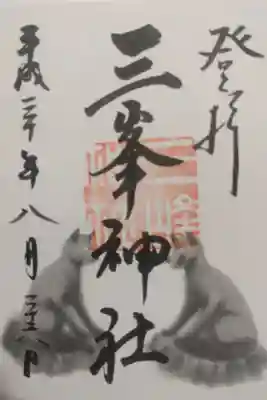 登拝
三峯神社
平成二十年八月二十八日